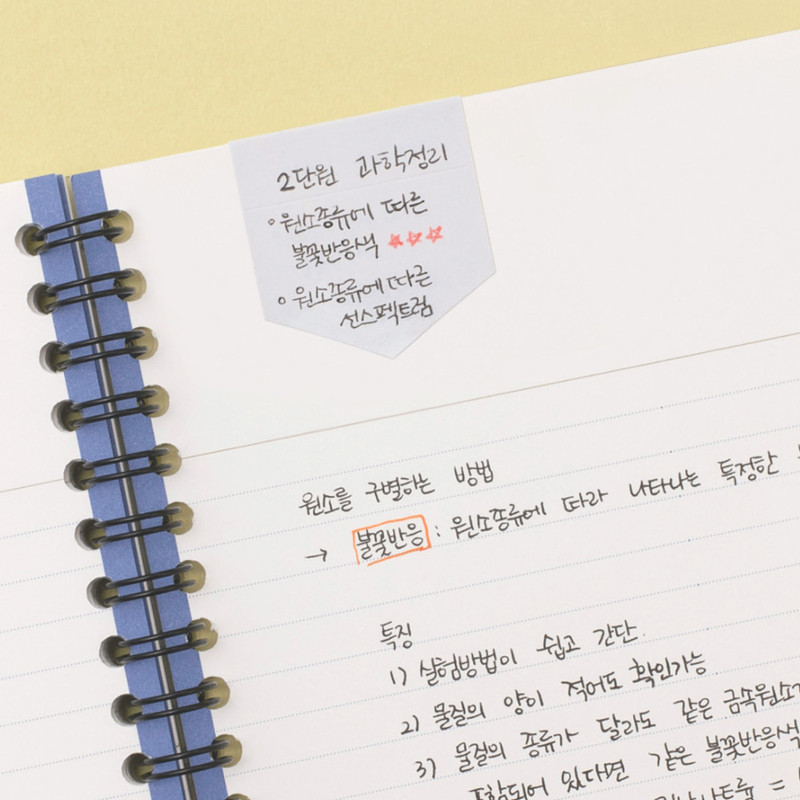 2단원 과학정리
◦ 원소종류에 따른
불꽃반응색 ☆☆☆
◦ 원소종류에 따른
선스펙트럼
원소를 구별하는 방법
→ 불꽃반응 : 원소종류에 따라 나타나는 특정한
특징
1) 실험방법이 쉽고 간단.
2) 물질의 양이 적어도 확인가능
3) 물질의 종류가 달라도 같은 금속원소가
포함되어 있다면 같은 불꽃반응색